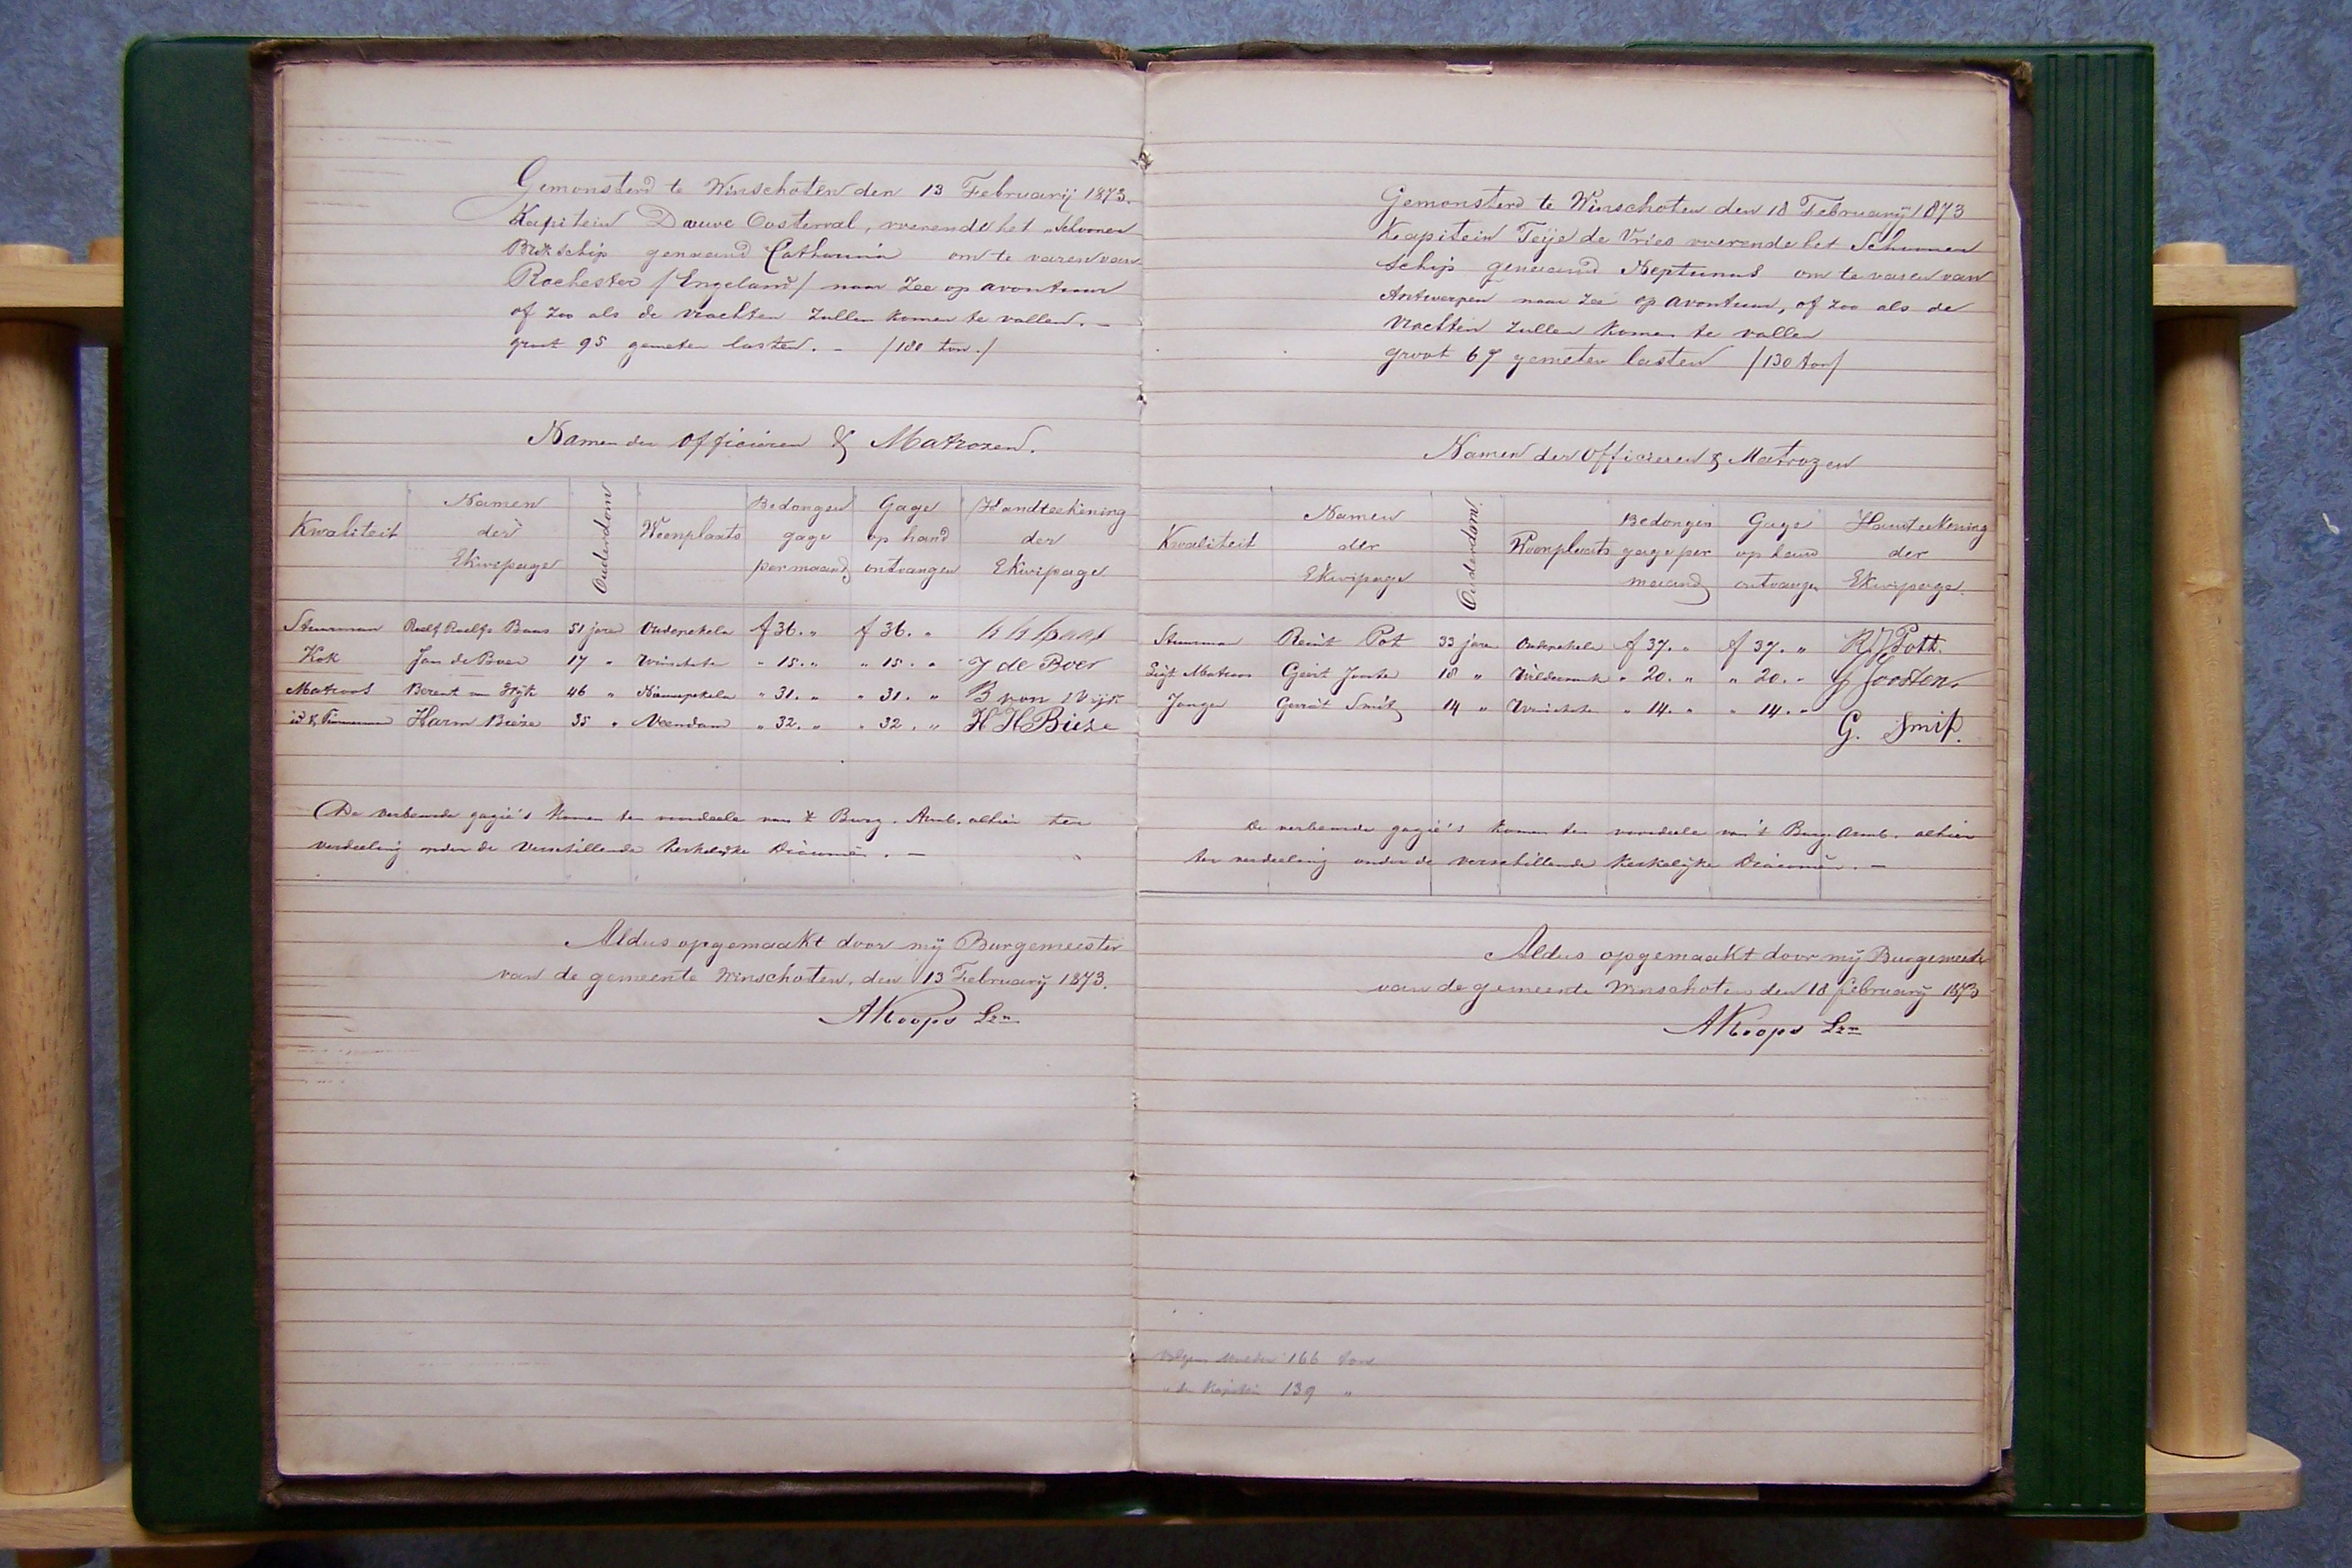 Gemonsterd te Winschoten den 13 Februarij 1873.
Kapitein Douwe Oosterval, voerende het Schoener
Brikschip genaamd Catharina om te varen van
Rochester /Engeland/ naar Zee op avontuur
of zoo als de vrachten zullen komen te vallen. –
groot 95 gemeten lasten. – /180 ton./
Namen der Officieren & Matrozen.
Kwaliteit Namen der Ekwipage Ouderdom Woonplaats Bedongen gage per maand Gage op hand ontvangen Handteekening der Ekwipage
Stuurman Roelf Roelfs Baas 51 jare Oudepekela f 36. „ f 36. „ Baas
Kok Jan de Boer 17 „ Winschoten „ 15. „ „ 15. „ J de Boer
Matroos Berent van Wijk 46 „ Nieuwepekela „ 31. „ „ 31. „ B van Wijk
id & Timmerman Harm Bieze 35 „ Veendam „ 32. „ „ 32. „ H H Bieze
De verbeurde gagie's komen ten voordeele van 't Burg. Armb. alhier ter
verdeeling onder de verschillende kerkelijke Diaconiën. –
Aldus opgemaakt door mij Burgemeester
van de gemeente Winschoten, den 13 Februarij 1873.
AKoops Lzn
Gemonsterd te Winschoten den 18 Februarij 1873
Kapitein Teije de Vries voerende het Schoener
schip genaamd Neptunus om te varen van
Antwerpen naar zee op avontuur, of zoo als de
vrachten zullen komen te vallen
groot 67 gemeten lasten /130 ton/
Namen der Officieren & Matrozen
Kwaliteit Namen der Ekwipage Ouderdom Woonplaats Bedongen gage per maand Gage op hand ontvangen Handteekening der Ekwipage.
Stuurman Reint Pot 33 jare Oudepekela f 37. „ f 37. „ R. J Pott.
Ligt Matroos Geert Joosten 18 „ Wildervank „ 20. „ „ 20. „ G Joosten.
Jonge Gerrit Smit 14 „ Winschoten „ 14. „ „ 14. „ G. Smit.
De verbeurde gagie's komen ten voordeele van 't Burg. Armb. alhier
ter verdeeling onder de verschillende kerkelijke Diaconiën. –
Aldus opgemaakt door mij Burgemeester
van de gemeente Winschoten den 18 februarij 1873
AKoops Lzn
Volgens 166 ton
„ de Kapitein 139 „